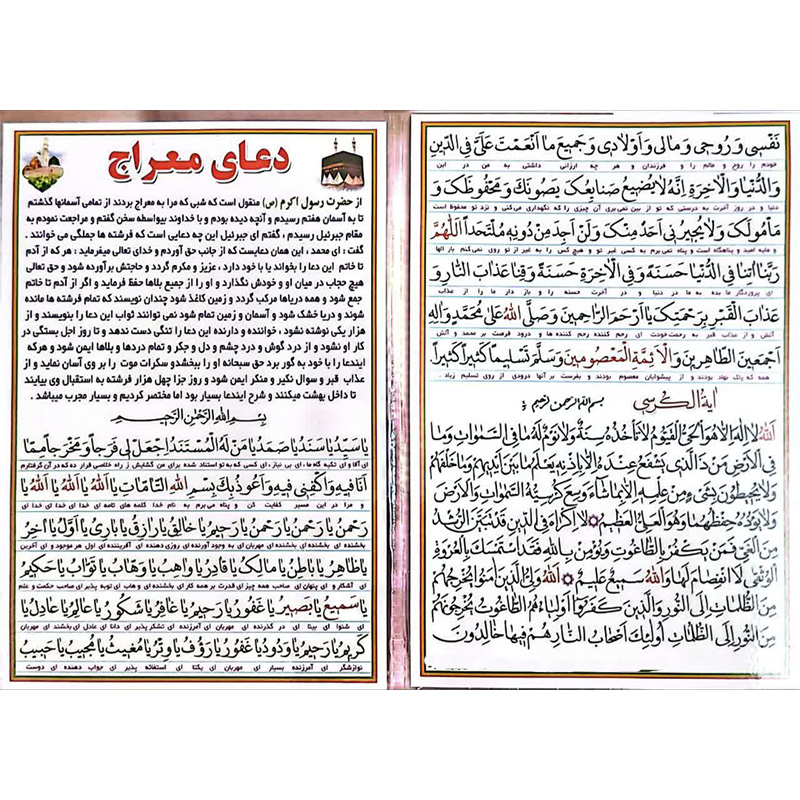 دعای معراج
از حضرت رسول اکرم (ص) منقول است که شبی که مرا به معراج بردند از تمامی آسمانها گذشتم
تا به آسمان هفتم رسیدم و آنچه دیده بودم و با خداوند بیواسطه سخن گفتم و مراجعت نمودم به
مقام جبرئیل رسیدم ، گفتم ای جبرئیل این چه دعایی است که فرشته ها جملگی می خوانند .
گفت : ای محمد ، این همان دعایست که از جانب حق آوردم و خدای تعالی میفرماید : هر که از آدم
تا خاتم این دعا را بخواند یا با خود دارد ، عزیز و مکرم گردد و حاجتش برآورده شود و حق تعالی
هیچ حجاب در میان او و خودش نگذارد و او را از جمیع بلاها حفظ فرماید و اگر از آدم تا خاتم
جمع شود و همه دریاها مرکب گردد و زمین کاغذ شود چندان نویسند که تمام فرشته ها مانده
شوند و دریا خشک شود و آسمان و زمین تمام شود نمی توانند ثواب این دعا را بنویسند و از
هزار یکی نوشته نشود ، خواننده و دارنده این دعا را تنگی دست ندهد و تا روز اجل بستگی در
کار او نشود و از درد گوش و درد چشم و دل و جگر و تمام دردها و بلاها ایمن شود و هرگه
ایندعا را با خود به گور برد حق سبحانه او را ببخشد و سکرات موت را بر وی آسان نماید و از
عذاب قبر و سوال نکیر و منکر ایمن شود و روز جزا چهل هزار فرشته به استقبال وی بیایند
تا داخل بهشت میکنند و شرح ایندعا بسیار بود اما مختصر کردیم و بسیار مجرب میباشد .
بِسْمِ اللهِ الرَّحْمٰنِ الرَّحیمِ
یا سَیِّدُ یا سَنَدُ یا صَمَدُ یا مَنْ لَهُ الْمُسْتَنَدُ اِجْعَلْ لی فَرَجاً وَ مَخْرَجاً مِمّا
ای آقا و ای تکیه گاه ما، ای بی نیاز ، ای کسی که به تو استناد شده برای من گشایش ز راه خلاصی قرار ده که در آن گرفتارم
اَنَا فیهِ وَ اکْفِنی فیهِ وَ اَعُوذُ بِکَ بِسْمِ اللهِ التّامّاتِ یا اَللهُ یا اَللهُ یا اَللهُ یا
و مرا در این مسیر کفایت کن و پناه می‌برم به نام خدا کلمه های تامه ای خدا ای خدا ای خدا ای
رَحْمنُ یا رَحْمنُ یا رَحْمنُ یا رَحیمُ یا خالِقُ یا رازِقُ یا باری یا اَوَّلُ یا آخِرُ
بخشنده ای بخشنده ای بخشنده ای مهربان ای به وجود آورنده ای روزی دهنده ای آفریننده ای اول هر موجود و ای آخرین
یا ظاهِرُ یا باطِنُ یا مالِکُ یا قادِرُ یا واهِبُ یا وَهّابُ یا تَوّابُ یا حَکیمُ
ای آشکار و ای پنهان ای صاحب همه چیز ای قدرت بر همه کار ای بخشنده ای و هاب ای توبه پذیر ای صاحب حکمت و علم
یا سَمیعُ یا بَصیرُ یا غَفُورُ یا رَحیمُ یا غافِرُ یا شَکُورُ یا عالِمُ یا عادِلُ یا
ای شنوا ای بینا ای در گذرنده ای مهربان ای آمرزنده ای تشکر پذیر ای دانا ای عادل ای بخشنده ای مهربان
کَریمُ یا رَحیمُ یا وَدُودُ یا غَفُورُ یا رَؤُفُ یا وِتْرُ یا مُغیثُ یا مُجیبُ یا حَبیبُ
نوازشگر ای آمرزنده بسیار ای مهربان ای یکتا ای استغاثه پذیر ای جواب دهنده ای دوست
نَفْسی وَ رُوحی وَ مالی وَ اَوْلادی وَ جَمیعَ ما اَنْعَمْتَ عَلَیَّ فِی الدّینِ
خودم را روح و مالم را و فرزندان و هر چه ارزانی داشتی به من در این
وَالدُّنْیا وَ الْآخِرَةِ اِنَّهُ لا یُضیعُ صَنایِعُکَ یَصُونُکَ وَ مَحْفُوظُکَ وَ
دنیا و در روز آخرت به درستی که تو از بین نمی‌بری آن چیزی را که نگهداری می‌کنی و نزد تو محفوظ است
مَاْمُولُکَ وَ لا یُجیرُنی اَحَدٌ مِنْکَ وَ لَنْ اَجِدَ مِنْ دُونِهِ مُلْتَحَداً اَللّهُمَّ
و مایه امید و پناهگاه است و پناه نمی‌برم به کسی غیر تو و هیچ کس را به غیر از تو روی نمی‌کنم بار الها
رَبَّنا اتِنا فِی الدُّنْیا حَسَنَةً وَ فِی الْآخِرَةِ حَسَنَةً وَ قِنا عَذابَ النّارِ وَ
ای پروردگار ما بده به ما در دنیا و در آخرت حسنه را و باز دار ما را از عذاب
عَذابَ الْقَبْرِ بِرَحْمَتِکَ یا اَرْحَمَ الرّاحِمینَ وَ صَلَّی اللهُ عَلی مُحَمَّدٍ وَ الِهِ
آتش و از عذاب قبر به رحمت خودت ای رحم کننده رحم کننده ها و درود فرست بر محمد و آلش
اَجْمَعینَ الطّاهِرینَ وَ الْاَئِمَّةِ الْمَعْصُومینَ وَ سَلَّمَ تَسْلیماً کَثیراً کَثیراً
همه که پاک نهاد بودند و از پیشوایان معصوم بودند و بفرست بر آنها درودی از روی تسلیم زیاد .
ایَةُ الْکُرْسی بسم الله الرحمن الرحیم
اَللهُ لا اِلهَ اِلّا هُوَ الْحَیُّ الْقَیُّومُ لا تَأْخُذُهُ سِنَةٌ وَلا نَوْمٌ لَهُ ما فِی السَّمواتِ وَ ما
فِی الْاَرْضِ مَنْ ذَا الَّذی یَشْفَعُ عِنْدَهُ اِلّا بِاِذْنِهِ یَعْلَمُ ما بَیْنَ اَیْدیهِمْ وَ ما خَلْفَهُمْ
وَلا یُحیطُونَ بِشَیْءٍ مِنْ عِلْمِهِ اِلّا بِما شاءَ وَسِعَ کُرْسِیُّهُ السَّمواتِ وَ الْاَرْضَ
وَلا یَؤُدُهُ حِفْظُهُما وَ هُوَ الْعَلِیُّ الْعَظیمُ لا اِکْراهَ فِی الدّینِ قَدْ تَبَیَّنَ الرُّشْدُ
مِنَ الْغَیِّ فَمَنْ یَکْفُرْ بِالطّاغُوتِ وَ یُؤْمِنْ بِاللهِ فَقَدِ اسْتَمْسَکَ بِالْعُرْوَةِ
الْوُثْقی لَا انْفِصامَ لَها وَ اللهُ سَمیعٌ عَلیمٌ اَللهُ وَلِیُّ الَّذینَ امَنُوا یُخْرِجُهُمْ
مِنَ الظُّلُماتِ اِلَی النُّورِ وَ الَّذینَ کَفَرُوا اَوْلِیاؤُهُمُ الطّاغُوتُ یُخْرِجُونَهُمْ
مِنَ النُّورِ اِلَی الظُّلُماتِ اُولئِکَ اَصْحابُ النّارِ هُمْ فیها خالِدُونَ